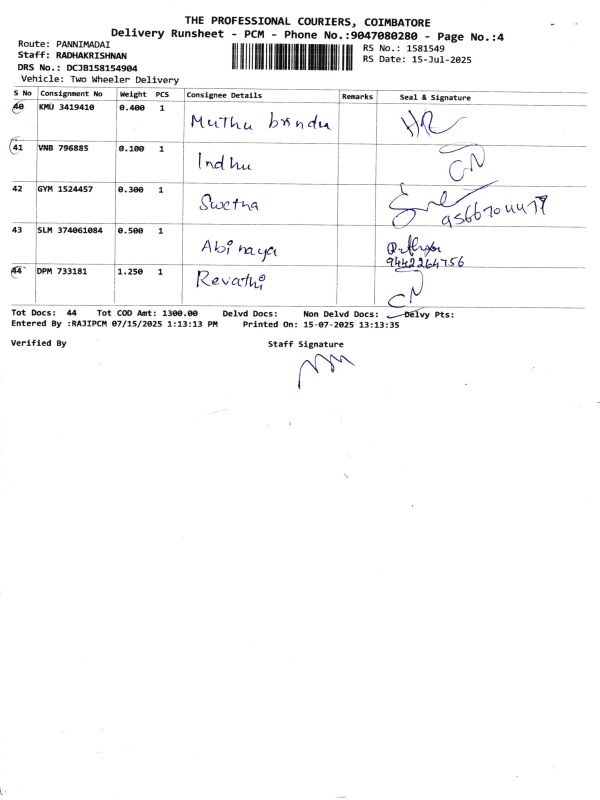 THE PROFESSIONAL COURIERS, COIMBATORE
Delivery Runsheet - PCM - Phone No.:9047080280 - Page No.:4
Route: PANNIMADAI
RS No.: 1581549
Staff: RADHAKRISHNAN
RS Date: 15-Jul-2025
DRS No.: DCJB158154904
Vehicle: Two Wheeler Delivery
S No Consignment No Weight PCS Consignee Details Remarks Seal & Signature
40 KMU 3419410 0.400 1 Muthu HR
41 VNB 796885 0.100 1 Indhu CN
42 GYM 1524457 0.300 1 Swetha
43 SLM 374061084 0.500 1 Abi naya 9442264756
44 DPM 733181 1.250 1 Revathi CN
Tot Docs: 44 Tot COD Amt: 1300.00 Delvd Docs: Non Delvd Docs: Delvy Pts:
Entered By :RAJIPCM 07/15/2025 1:13:13 PM Printed On: 15-07-2025 13:13:35
Verified By Staff Signature